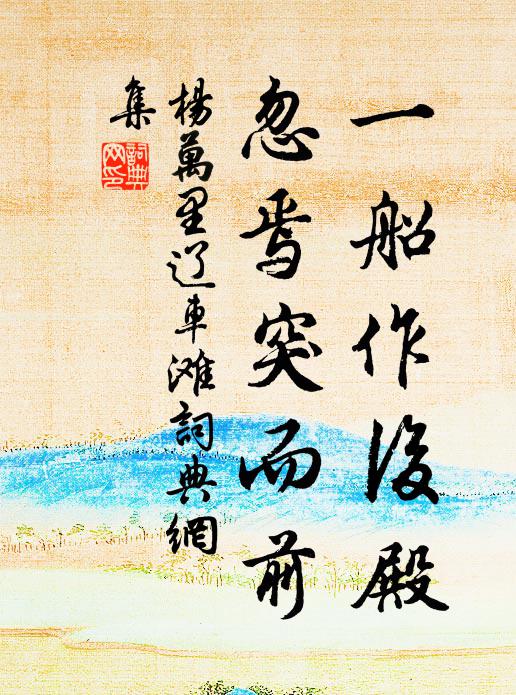 一船作後殿
忽焉突而前
楊萬里辽車滩詞典網
集
詞典网印